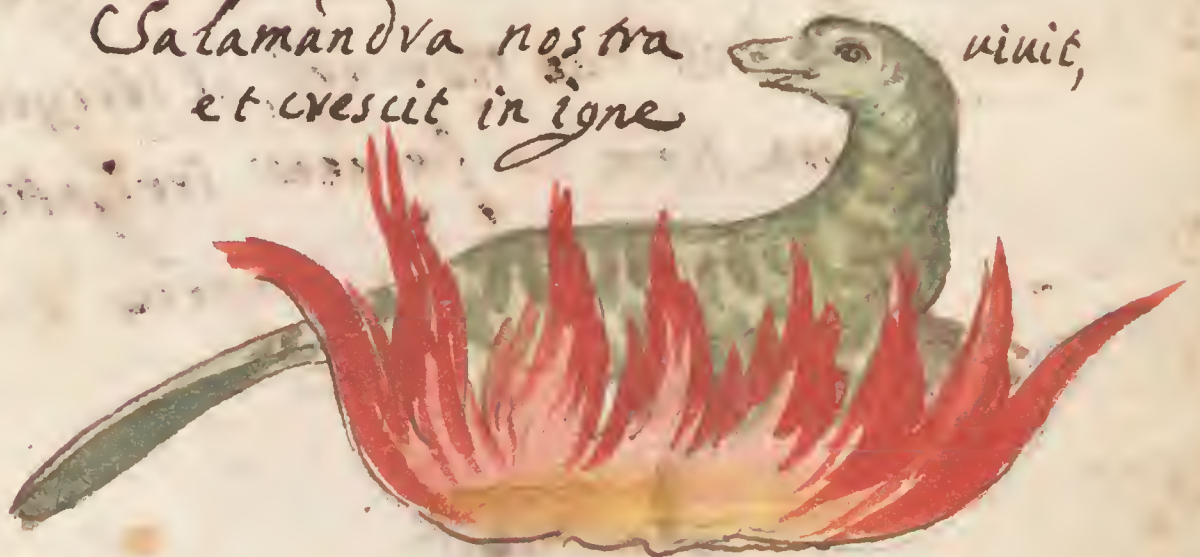 Salamandra nostra vivit,
et crescit in igne